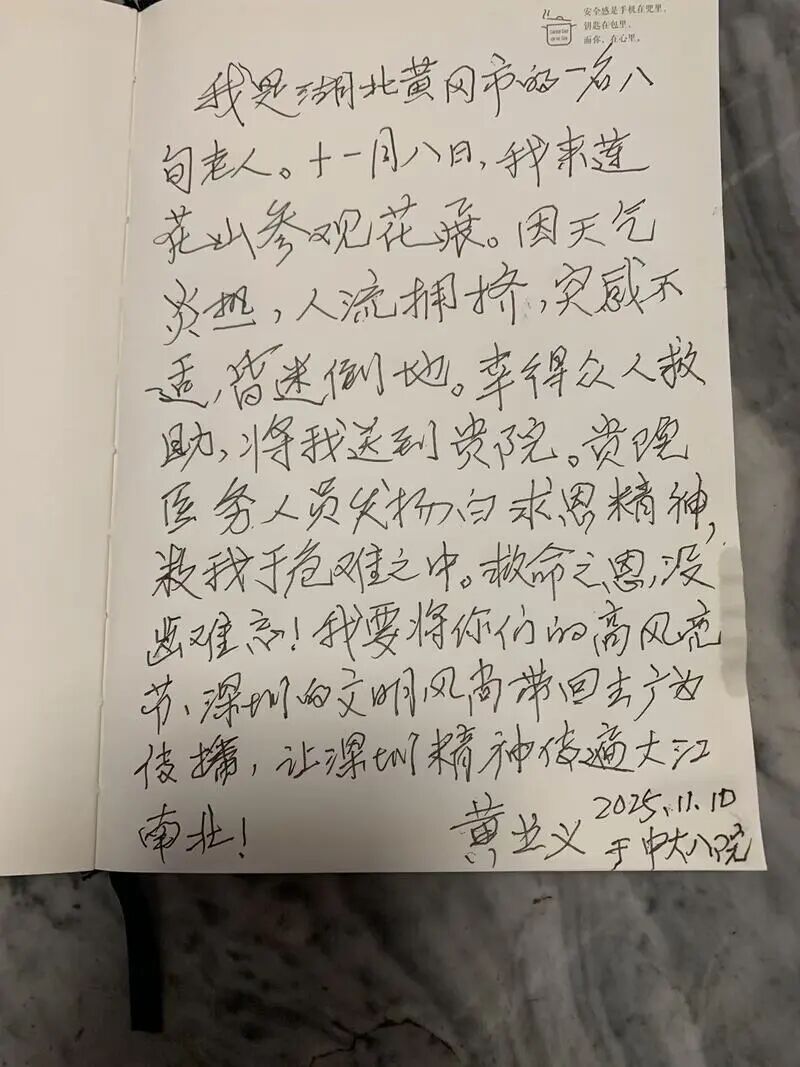 安全感是手机在兜里，
钥匙在包里，
而你，在心里。
我是湖北黄冈市的一名八
旬老人。十一月八日，我来莲
花山参观花展。因天气
炎热，人流拥挤，突感不
适，昏迷倒地。幸得众人救
助，将我送到贵院。贵院
医务人员发扬白求恩精神，
救我于危难之中。救命之恩，没
齿难忘！我要将你们的高风亮
节、深圳的文明风尚带回去广为
传播，让深圳精神传遍大江
南北！
黄业义
2025.11.10
于中大八院